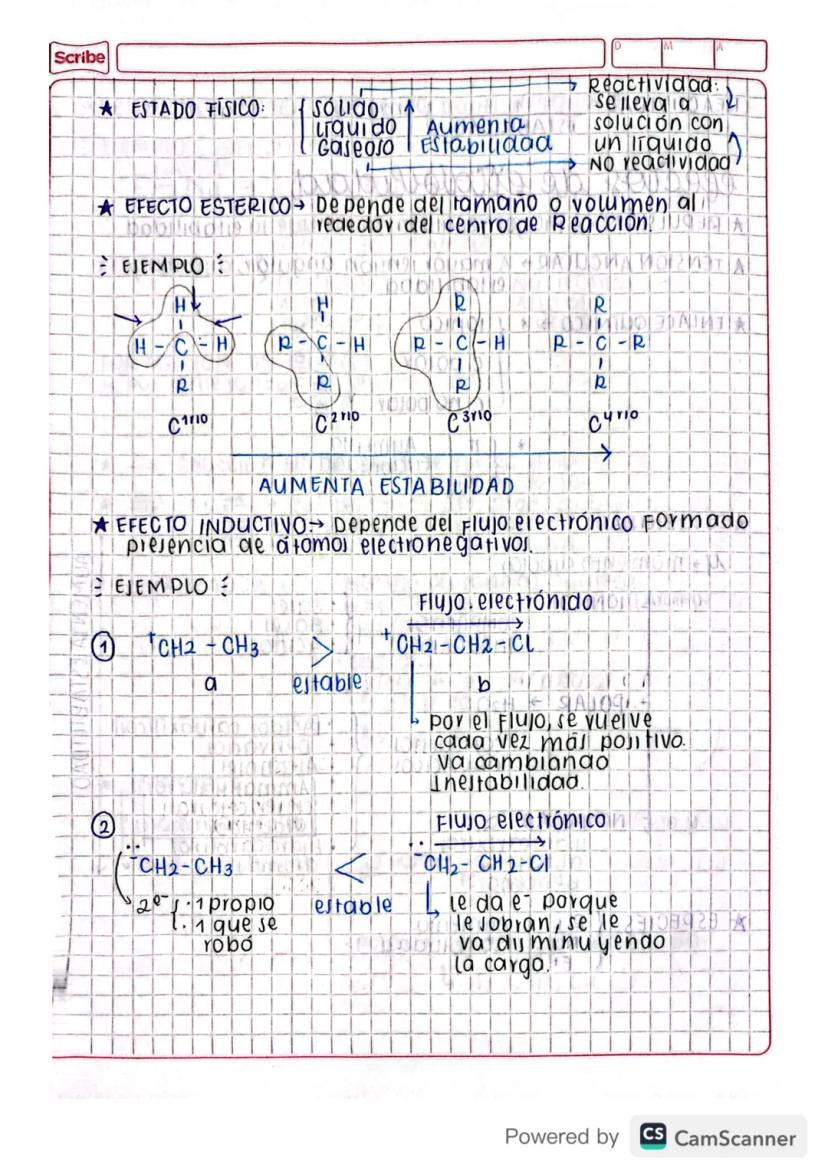 Scribe
D M A
★ ESTADO FÍSICO: SÓLIDO
LÍQUIDO
GASEOSO
Aumenta
EStabilidad
Reactividad:
Se lleva a
solución con
un líquido
NO reactividad
★ EFECTO ESTERICO → Depende del tamaño o volumen al
rededor del centro de Reacción.
EJEMPLO
H H R R
H - C - H R - C - H R - C - H R - C - R
R R R R
C1rio C2rio C3rio C4rio
AUMENTA ESTABILIDAD
★ EFECTO INDUCTIVO:→ Depende del Flujo electrónico Formado
presencia de átomos electronegativos.
EJEMPLO
Flujo electrónido
1 +CH2 - CH3 > +CH2 - CH2 - Cl
a estable b
por el Flujo, se vuelve
cada vez más positivo.
Va cambiando
Inestabilidad.
2 Flujo electrónico
-CH2 - CH3 < -CH2 - CH2 - Cl
2e- { · 1 propio
· 1 que se
robó
estable
le da e- porque
le sobran, se le
va disminuyendo
la cargo.
Powered by CS CamScanner